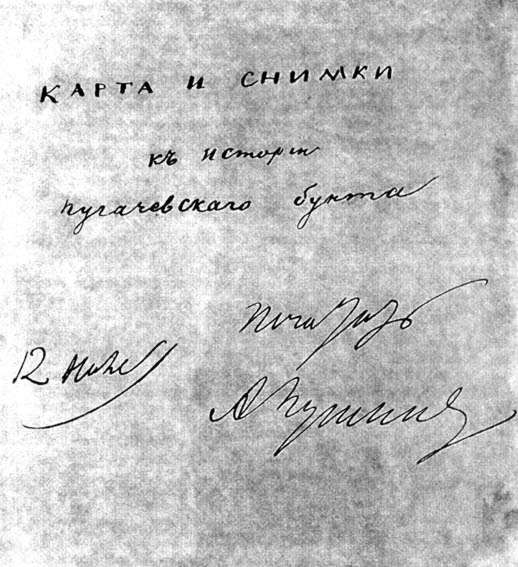 КАРТА И СНИМКИ
къ исторіи
пугачевскаго бунта
Печатать
12 Нояб
А Пушкинъ